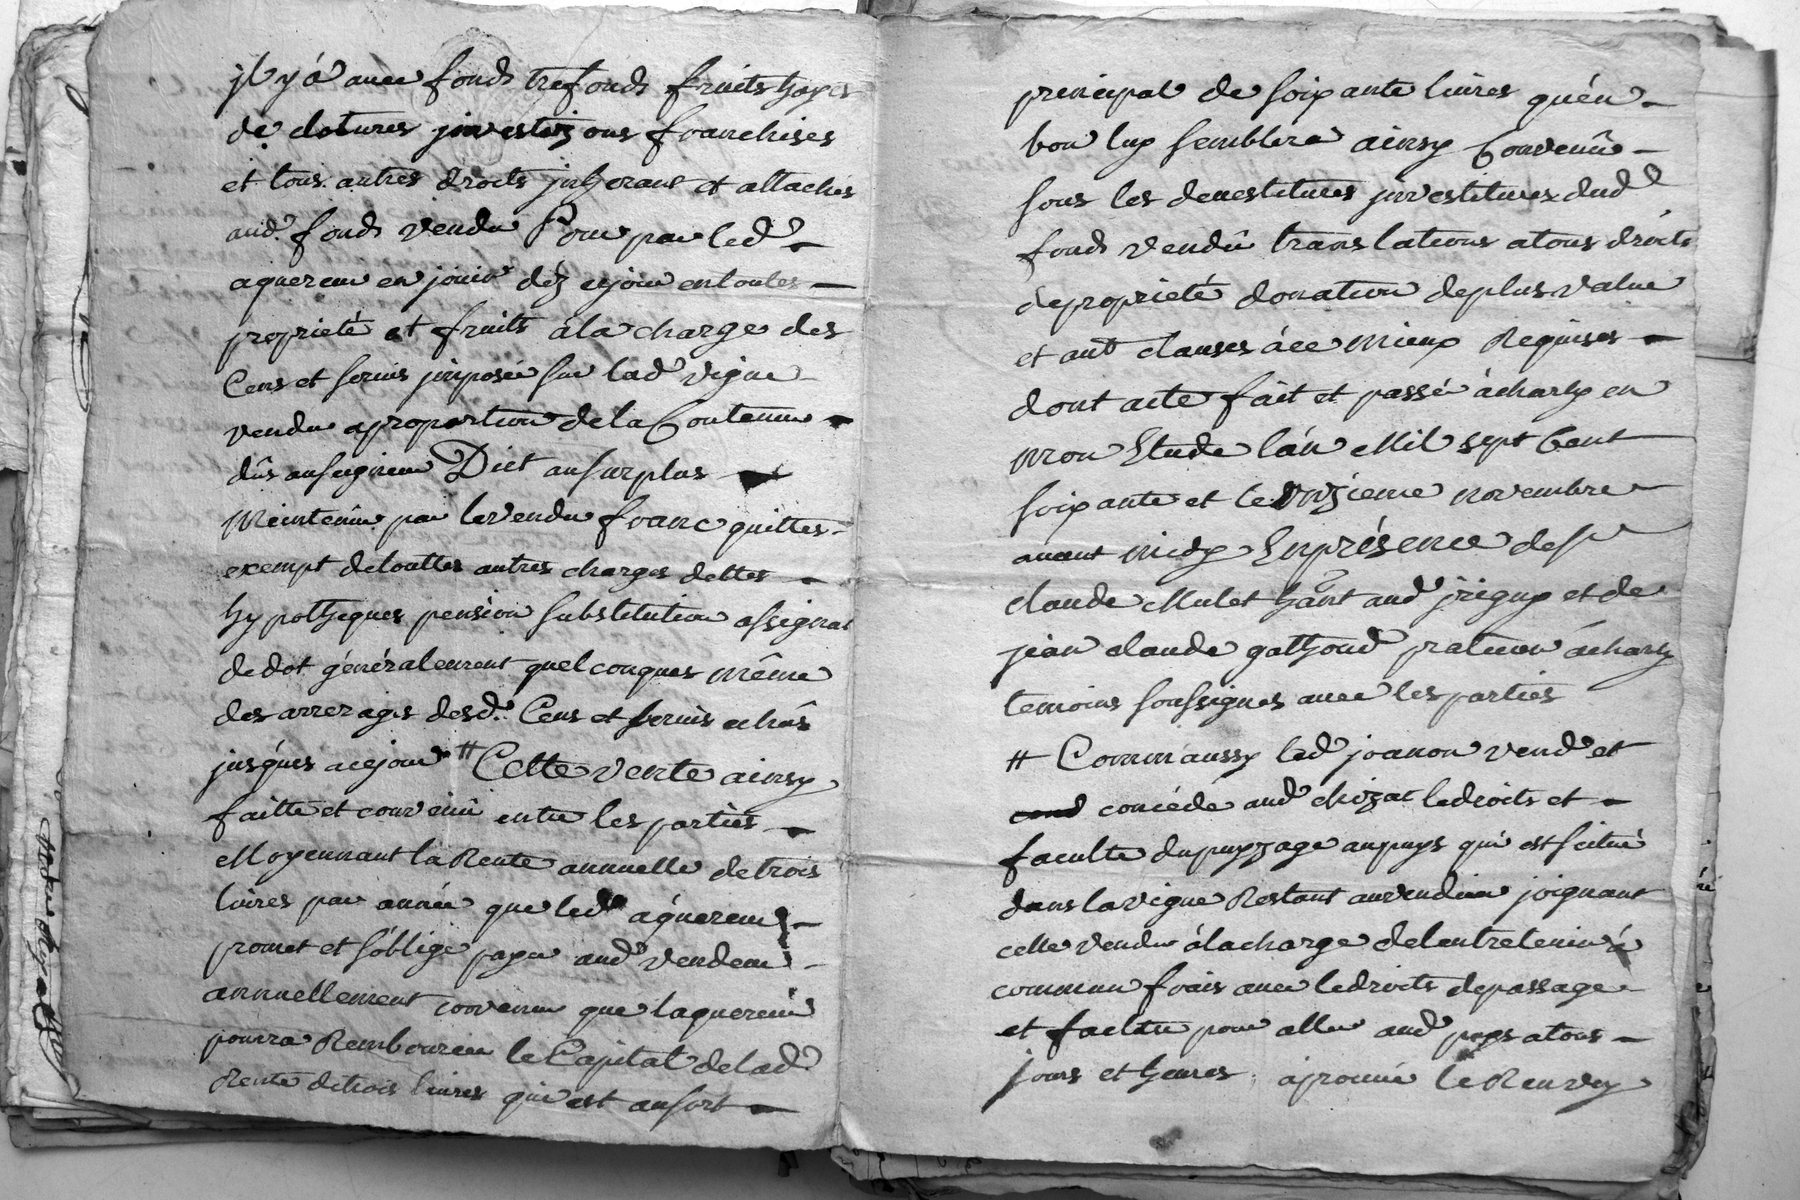 jl y á avec fonds trefonds fruits hayes
de clotures jnvestizons franchises
et tous autres droits jnherant et attachés
aud. fonds vendu Pour par led.
aquereur en jouir déz cejour entoutes
proprieté et fruits ála charge des
Cens et servis jmposée sur lad. vigne
vendu aproportion dela Contenue
dûs auseigneur Diet ausurplus
Maintenüe par levendeur franc quittes
exempt detouttes autres charges dettes
hypotheques pension substitution assignat
dedot généralement quelconques même
des arrerages desd. Cens et servis echûs
jusqués acejour # Cette vente ainsy
faitte et convenüe entre les parties
Moyennant la Rente annuelle detrois
livres par année que led. aquereur
promet et s'oblige payer aud. vendeur
annuellement convenu que laquereur
pourra Rembourcer le Capital delad.
Rente detrois livres qui est ausort
principal de soixante livres quén
bon luy semblera ainsy Convenû
sous les devestitures jnvestitures dud.
fonds vendû translations atous droits
depropriété donation deplus value
et aut. clauses ácé mieux Requises
dont acte fait et passé ácharly en
mon Etude l'an Mil sept Cent
soixante et le onzieme novembre
avant midy Enprésence de sr.
claude Mulet hänt aud. jrigny et de
jean claude gathond praticien ácharly
temoins soussignes avec les parties
# Comm'aussy led. joanon vend et
concéde aud. chizat ledroits et
faculte dupuyzage aupuys qui est scitué
dans lavigne Restant auvendeur joignant
celle vendue álacharge delentretenir á
commun frais avec ledroits depassage
et faculté pour aller aud. puys atous
jours et heures aprouvé le Renvoy